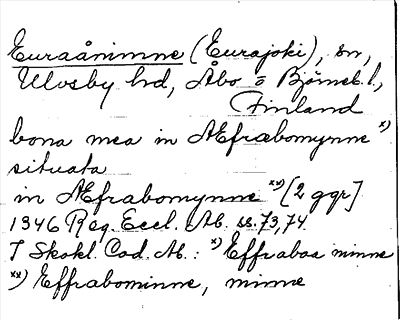 Euraånimne (Eurajoki), sn,
Ulvsby hd, Åbo o Björneb. l.,
Finland
bona mea in Æfrabomynne x)
situata
in Æfrabomynne xx) [2 ggr]
1346 Reg. Eccl. Ab. ss. 73, 74
I Skokl. Cod. Ab.: x) Effraboa minne
xx) Effrabominne, minne